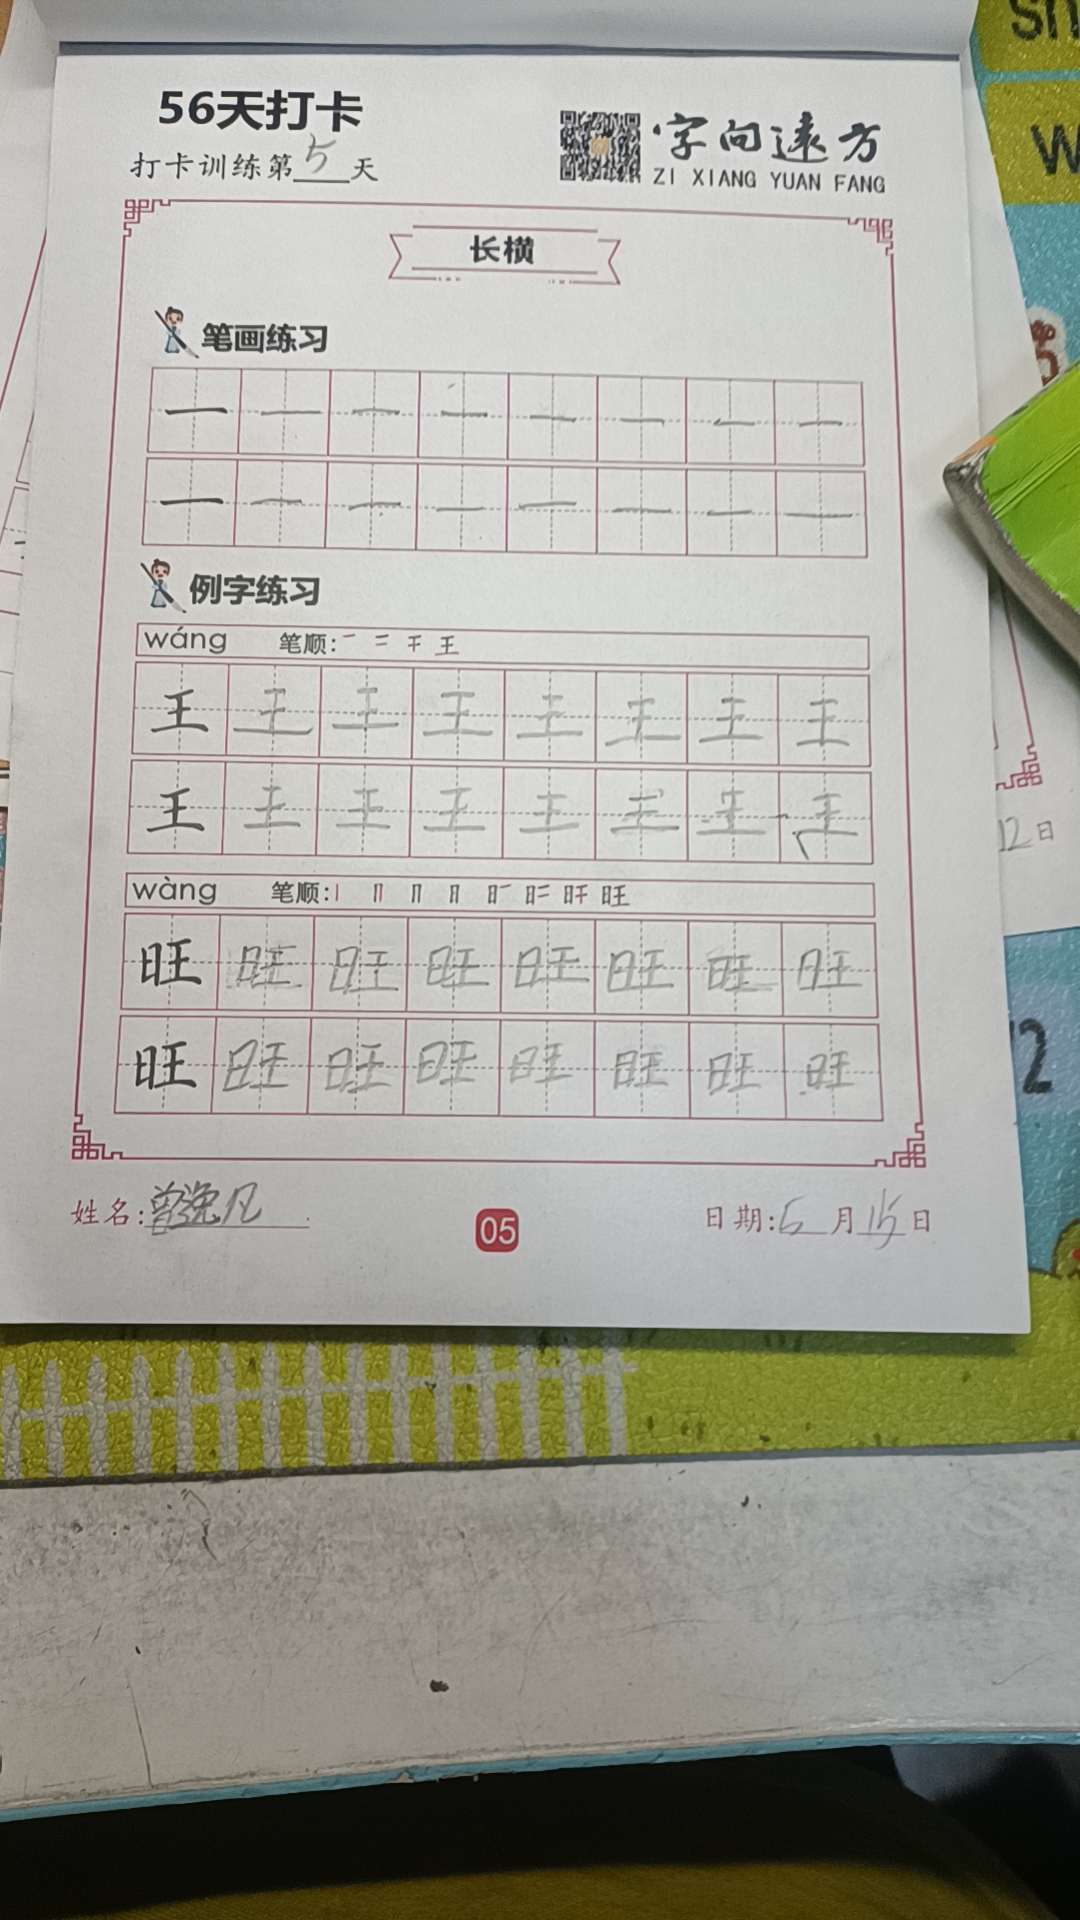 56天打卡
打卡训练第5天
字向远方
ZI XIANG YUAN FANG
长横
笔画练习
一 一 一 一 一 一 一 一
一 一 一 一 一 一 一 一
例字练习
wáng 笔顺:
王 王 王 王 王 王 王 王
王 王 王 王 王 王 王 王
wàng 笔顺:
旺 旺 旺 旺 旺 旺 旺 旺
旺 旺 旺 旺 旺 旺 旺 旺
姓名:曾逸凡
05
日期:5月15日
12日
sh
w
12